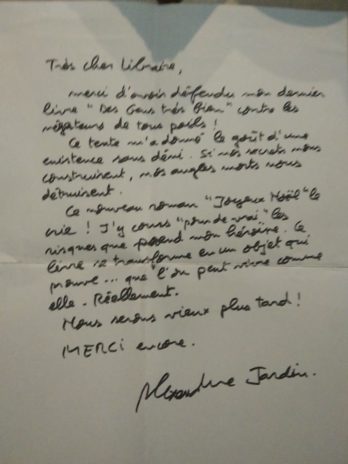 Très cher libraire,
merci d'avoir défendu mon dernier
livre "Des Gens très Bien" contre les
négateurs de tous poils !
Ce texte m'a donné le goût d'une
existence sans déni. Si nos secrets nous
construisent, nos angles morts nous
détruisent.
Ce nouveau roman "Joyeux Noël" le
crie ! J'y cours "pour de vrai" les
risques que prend mon héroïne. Ce
livre se transforme en un objet qui
prouve... que l'on peut vivre comme
elle. Réellement.
Nous serons vieux plus tard !
MERCI encore.
Alexandre Jardin.